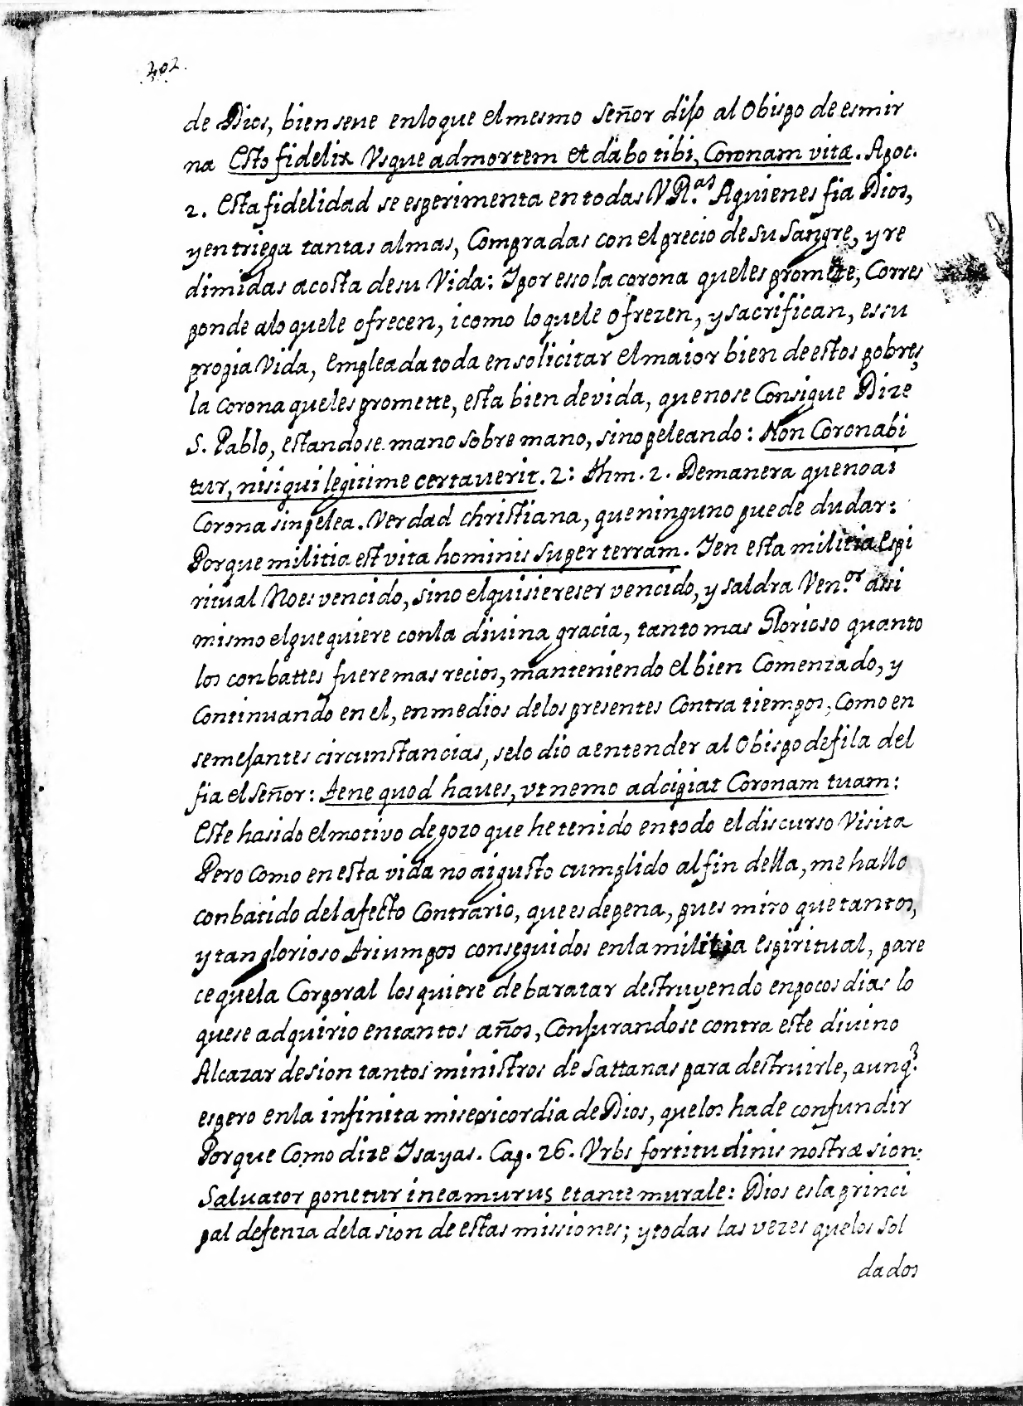 202.
de Dios, bien se ve en lo que el mesmo Señor dijo al Obispo de esmir
na Esto fidelix Vsque ad mortem et dabo tibi, Coronam vitæ. Apoc.
2. Esta fidelidad se esperimenta en todas V R.ᵃˢ Aquienes fia Dios,
y entriega tantas almas, Compradas con el precio de su Sangre, y re
dimidas acosta de su Vida: Ipor esso la corona que les promete, Corres
ponde alo que le ofrecen, i como lo que le ofrezen, y sacrifican, es su
propia Vida, empleada toda en solicitar el maior bien de estos pobres
la corona que les promette, esta bien devida, que no se Consigue Dize
S. Pablo, estandose mano sobre mano, sino peleando: Non Coronabi
tur, nisi qui legitime certaverit. 2: Thm. 2. Demanera que no ai
Corona sin pelea. Verdad christiana, que ninguno puede dudar:
Porque militia est vita hominis super terram. Ien esta militia Espi
ritual No es vencido, sino el quisiere ser vencido, y saldra Ven.ᵒʳ assi
mismo el que quiere con la divina gracia, tanto mas Glorioso quanto
los conbattes fuere mas recios, manteniendo el bien Comenzado, y
Continuando en el, en medios de los presentes Contra tiempos, Como en
semejantes circunstancias, se lo dio a entender al Obispo de fila del
fia el Señor: Tene quod haves, vt nemo adcipiat Coronam tuam:
Este ha sido el motivo de gozo que he tenido en todo el discurso Visita
Pero Como en esta vida no ai gusto cumplido al fin della, me hallo
conbatido del afecto Contrario, que es de pena, pues miro que tantos,
y tan glorioso triumpos conseguidos en la militia espiritual, pare
ce que la Corporal los quiere debaratar destruyendo en pocos dias lo
que se adquirio en tantos años, Conjurandose contra este divino
Alcazar de sion tantos ministros de Sattanas para destruirle, aunq.ᵉ
espero en la infinita misericordia de Dios, que los ha de confundir
Porque Como dize Isayas. Cap. 26. Vrbs fortitudinis nostræ sion:
Salvator ponetur in ea murus et ante murale: Dios es la princi
pal defenza de la sion de estas missiones; y todas las vezes que los Sol
dados